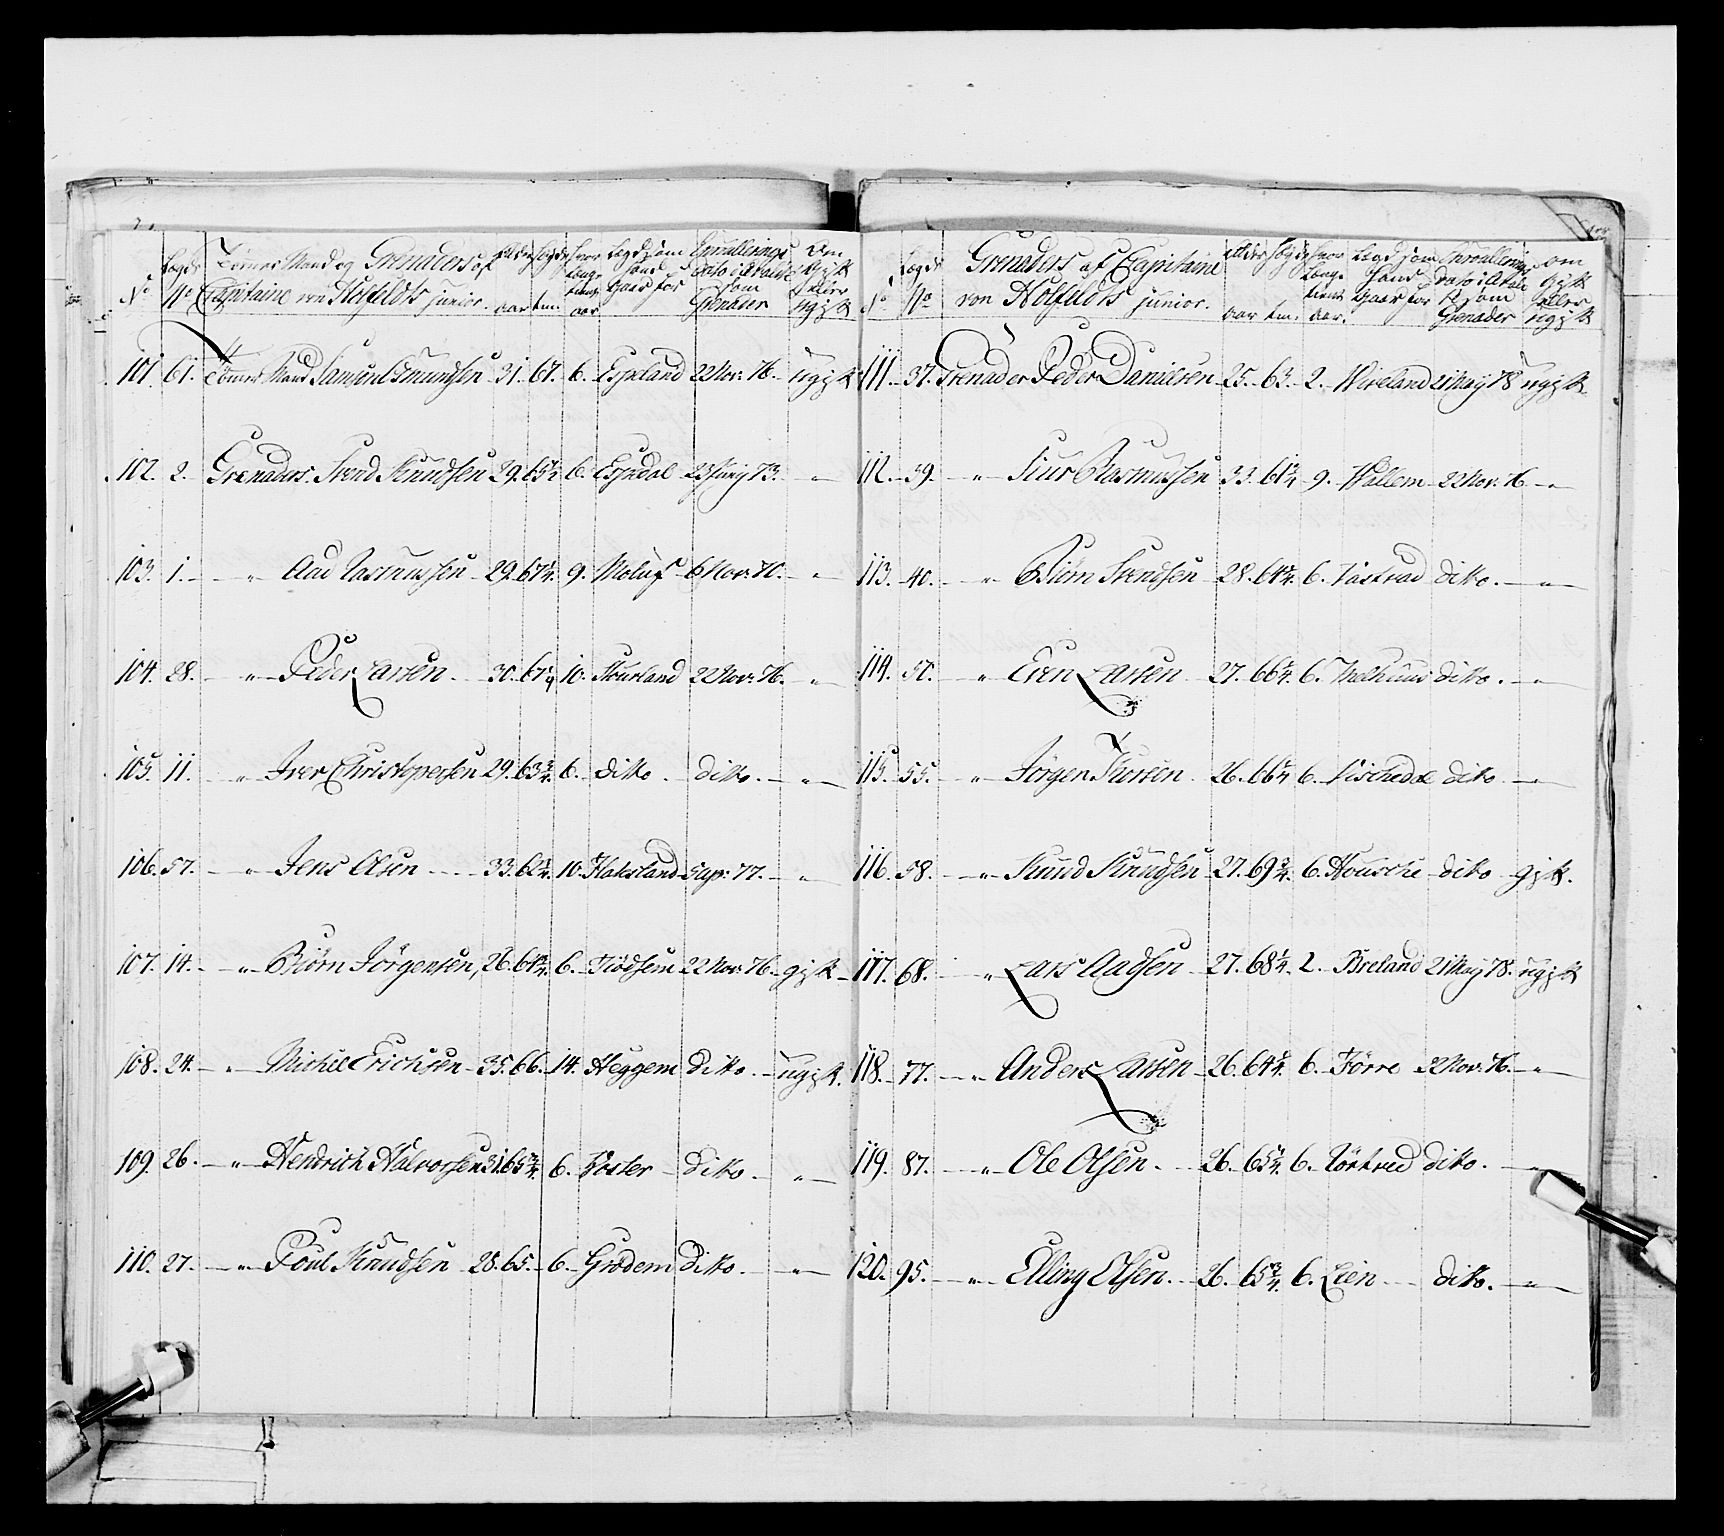 No
Legds No
Tömmer Mand og Grenaders af Capitaine von Hölfeldts junior.
Alder aar
Høyde tm.
hvor lenge tient aar
Legd som hand gaar for
Enroullerings Dato i Etate som Grenader
om Gift eller ugift
101. 61. Tömmer Mand Samuel Omundsen 31. 67. 6. Espeland 22 Nov: 76. ugift
102. 2. Grenaders. Svend Knudsen 29. 65½ 6. Espedal 23 Junij 73. "
103. 1. " Aad Rasmussen 29. 67¼. 9. Moluf 6 Nov: 70. "
104. 28. " Peder Larsen. 30. 67¼ 10. Skurland 22 Nov: 76. "
105. 11. " Iver Christopersen 29. 63¾. 6. ditto. ditto. "
106. 57. " Jens Olsen 33. 62¾. 10. Haksland 5 apr: 77. "
107. 14. " Biörn Jörgensen, 26. 64¾. 6. Tiödsem 22 Nov: 76. gift
108. 24. " Michel Erichsen 35. 66. 14. Heggem ditto. ugift.
109. 26. " Hendrich Halvorsen 31. 65¾. 6. Foster ditto. "
110. 27. " Poul Knudsen 28. 65. 6. Grödem ditto. "
No
Legds No
Grenaders af Capitaine von Hölfeldts junior.
Alder aar
Høyde tm.
hvor lenge tient aar.
Legd som hand gaar for
Enroullerings Dato i Etate som Grenader
om Gift eller ugift
111. 37. Grenader Peder Danielsen 25. 63. 2. Wireland 21 Maij 78 ugift.
112. 39. " Siur Rasmussen 33. 61¾ 9. Wallem 22 Nov: 76 "
113. 40. " Biörn Svendsen 28. 64¼. 6. Tastrad ditto. "
114. 51. " Even Larsen 27. 66¼. 6. Melhuus ditto. "
115. 55. " Jörgen Tursen 26. 66¼ 6. ditto "
116. 58. " Knud Knudsen 27. 69¾. 6. Housche ditto gift.
117. 68. " Lars Aadsen 27. 68¼. 2. Breland 21 Maij 78. ugift
118. 77. " Anders Larsen 26. 64¼. 6. Törre 22 Nov: 76. "
119. 87. " Ole Olsen. 26. 65¼. 6. Törtred ditto. "
120. 95. " Elling Elsen. 26. 65¾. 6. Lien ditto. "